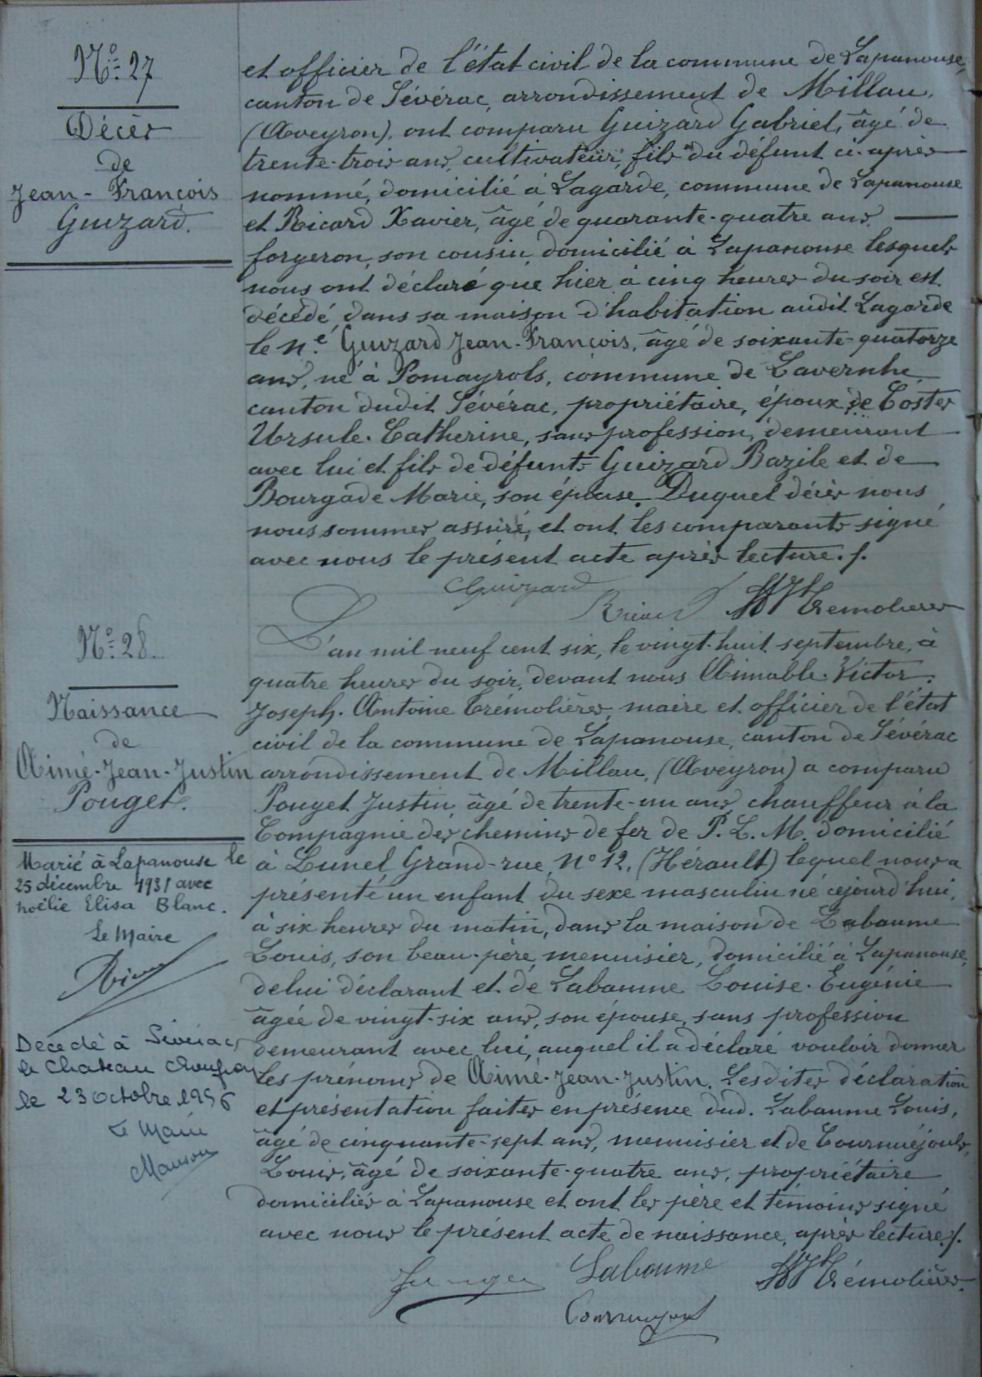 N° 27
Décès
de
Jean-François
Guizard.
et officier de l'état civil de la commune de Lapanouse,
canton de Sévérac, arrondissement de Millau,
(Aveyron), ont comparu Guizard Gabriel, âgé de
trente-trois ans, cultivateur, fils du défunt ci-après
nommé, domicilié à Lagarde, commune de Lapanouse
et Ricard Xavier, âgé de quarante-quatre ans,
forgeron, son cousin, domicilié à Lapanouse lesquels
nous ont déclaré que hier, à cinq heures du soir est
décédé dans sa maison d'habitation audit Lagarde
le n.é Guizard Jean-François, âgé de soixante-quatorze
ans, né à Pomayrols, commune de Lavernhe
canton dudit Sévérac, propriétaire, époux de Costes
Ursule-Catherine, sans profession, demeurant
avec lui et fils de défunts Guizard Bazile et de
Bourgade Marie, son épouse. Duquel décès nous
nous sommes assuré, et ont les comparants signé
avec nous le présent acte après lecture./.
Guizard
Ricard Trémolières
N° 28.
Naissance
de
Aimé-Jean-Justin
Pouget.
L'an mil neuf cent six, le vingt-huit septembre, à
quatre heures du soir, devant nous Aimable-Victor-
Joseph-Antoine Trémolières, maire et officier de l'état
civil de la commune de Lapanouse, canton de Sévérac
arrondissement de Millau, (Aveyron) a comparu
Pouget Justin, âgé de trente-un ans, chauffeur à la
Compagnie des chemins de fer de P. L. M. domicilié
à Lunel, Grand-rue, N° 12, (Hérault) lequel nous a
présenté un enfant du sexe masculin né cejourd'hui,
à six heures du matin, dans la maison de Labaume
Louis, son beau-père, menuisier, domicilié à Lapanouse,
de lui déclarant et de Labaume Louise-Eugénie
âgée de vingt-six ans, son épouse, sans profession
demeurant avec lui, auquel il a déclaré vouloir donner
les prénoms de Aimé-Jean-Justin. Lesdites déclaration
et présentation faites en présence dud. Labaume Louis,
âgé de cinquante-sept ans, menuisier et de Cournuéjouls,
Louis, âgé de soixante-quatre ans, propriétaire
domiciliés à Lapanouse et ont les père et témoins signé
avec nous le présent acte de naissance, après lecture./.
Labaume Trémolières.
Marié à Lapanouse le
25 décembre 1931 avec
Noëlie Elisa Blanc.
Le Maire
Décédé à Sévérac
le Chateau
le 23 octobre 1956
Le Maire